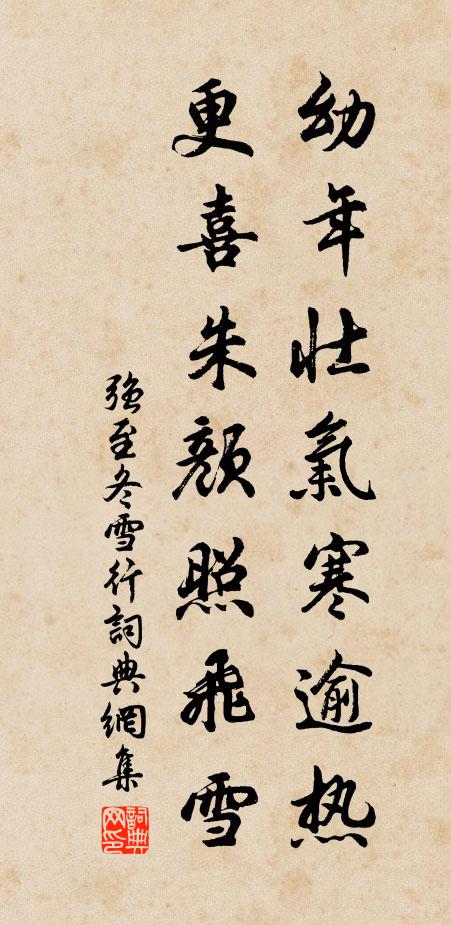 幼年壮氣寒逾热
更喜朱颜照飛雪
强至冬雪行詞典網集
詞典网印